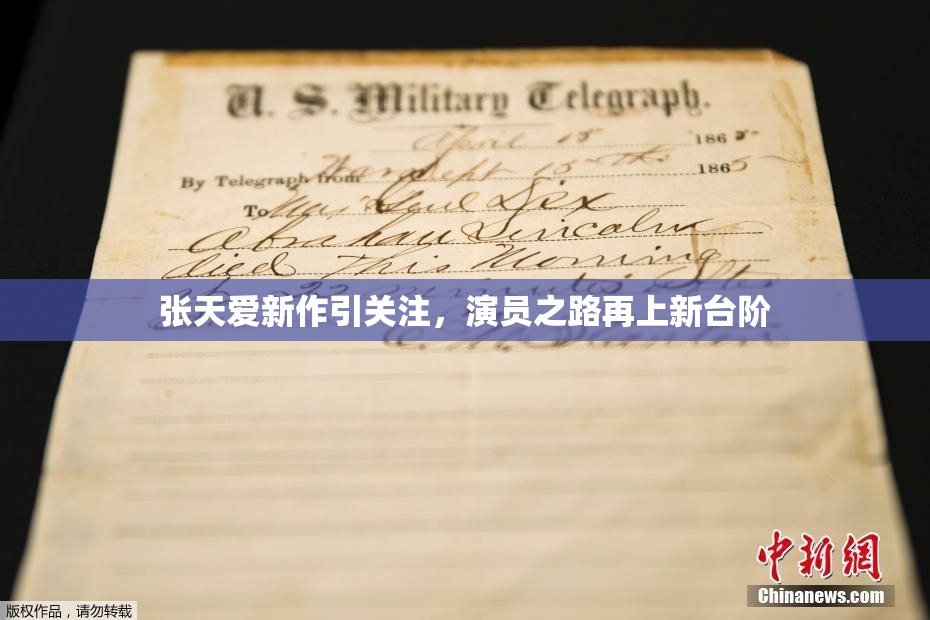 U. S. Military Telegraph.
April 15 1865
By Telegraph from War Dept 15th 1865
To Maj Genl Dix
Abraham Lincoln
died This Morning
22 minutes after
张天爱新作引关注，演员之路再上新台阶
中新网
Chinanews.com
版权作品，请勿转载